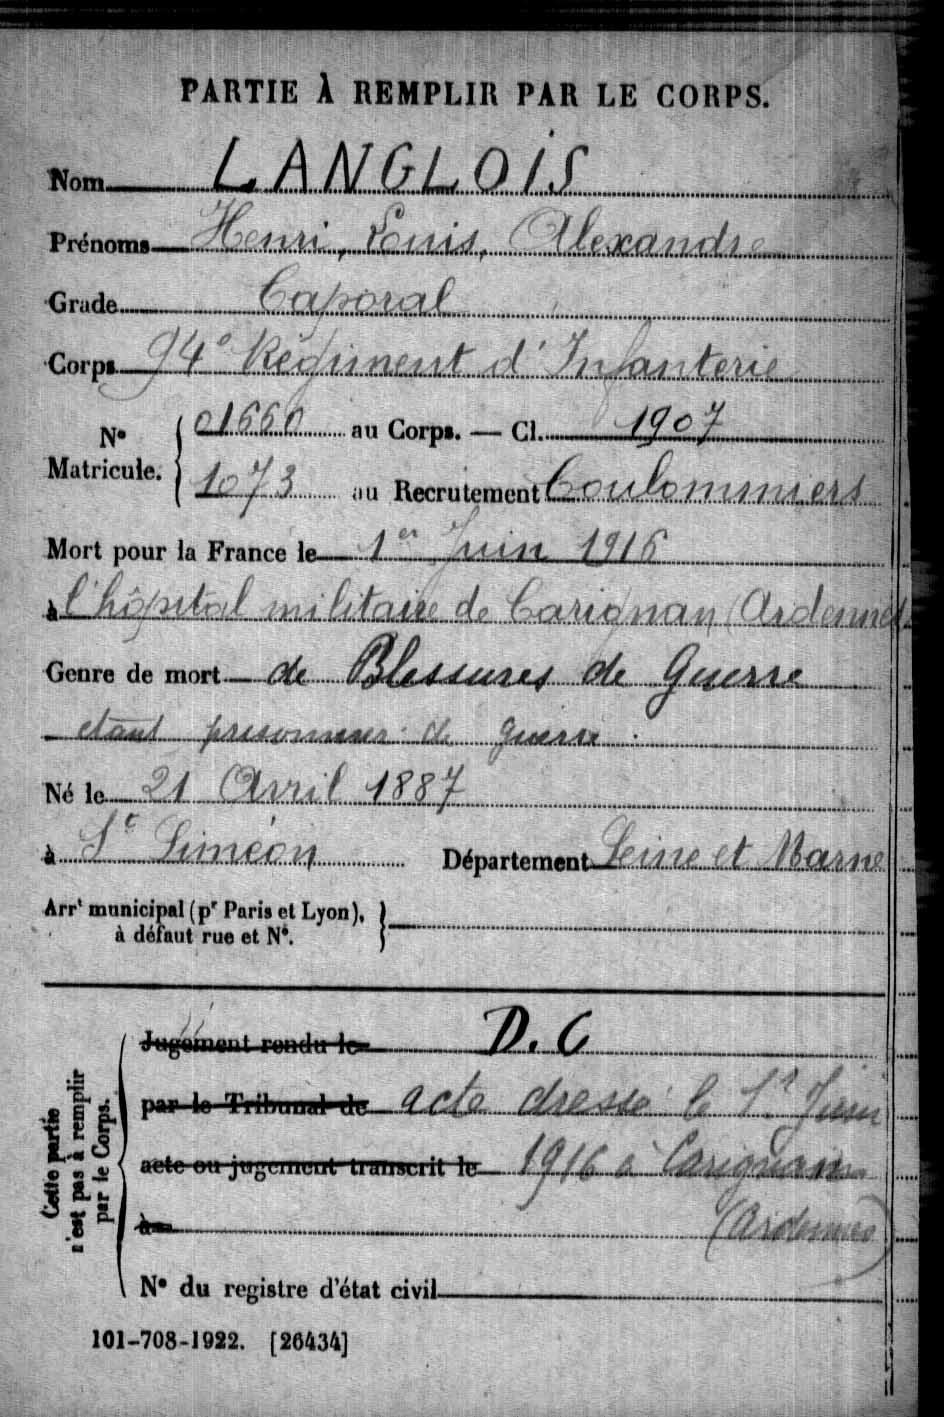 PARTIE À REMPLIR PAR LE CORPS.
Nom LANGLOIS
Prénoms Henri, Louis, Alexandre
Grade Caporal
Corps 94e Régiment d'Infanterie
N° Matricule. { 01660 au Corps. — Cl. 1907
1073 au Recrutement Coulommiers
Mort pour la France le 1er Juin 1916
à l'hôpital militaire de Carignan (Ardennes)
Genre de mort de Blessures de Guerre
étant prisonnier de guerre.
Né le 21 Avril 1887
à St Siméon Département Seine et Marne
Arrt municipal (pr Paris et Lyon), à défaut rue et N°. }
Cette partie n'est pas à remplir par le Corps.
Jugement rendu le D.C
par le Tribunal de acte dressé le 1r Juin
acte ou jugement transcrit le 1916 à Carignan
à (Ardennes)
N° du registre d'état civil
101-708-1922. [26434]